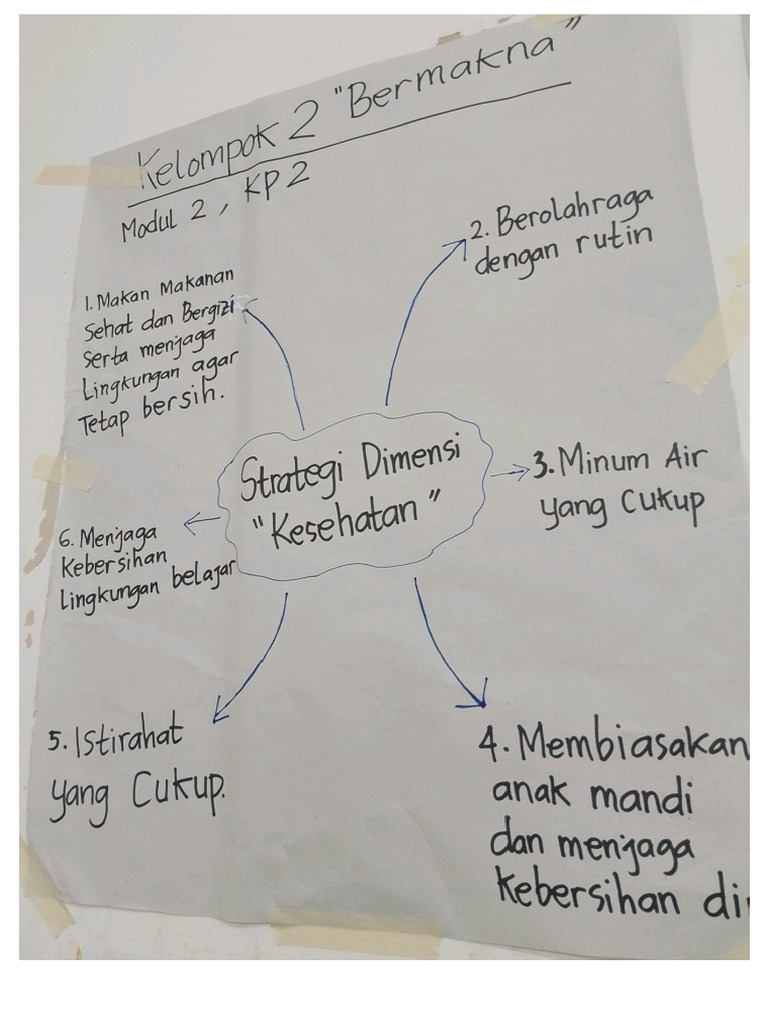 Kelompok 2 "Bermakna"
Modul 2, KP 2
1. Makan Makanan
Sehat dan Bergizi
Serta menjaga
Lingkungan agar
Tetap bersih.
2. Berolahraga
dengan rutin
Strategi Dimensi
"Kesehatan"
3. Minum Air
yang Cukup
6. Menjaga
Kebersihan
Lingkungan belajar
5. Istirahat
yang Cukup.
4. Membiasakan
anak mandi
dan menjaga
Kebersihan